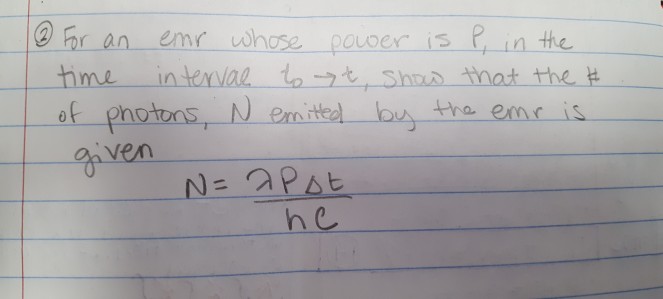 ② For an emr whose power is P, in the
time interval t₀→t, show that the #
of photons, N emitted by the emr is
given
N = λPΔt
hc